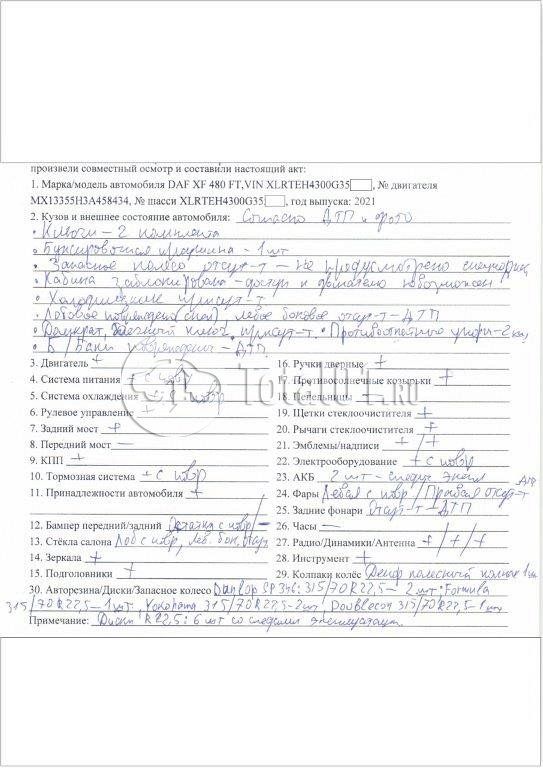 произвели совместный осмотр и составили настоящий акт:
1. Марка/модель автомобиля DAF XF 480 FT,VIN XLRTEH4300G35, № двигателя
MX13355H3A458434, № шасси XLRTEH4300G35, год выпуска: 2021
2. Кузов и внешнее состояние автомобиля: Согласно ДТП и фото
• Ключи – 2 комплекта
• Буксировочная проушина – 1 шт
• Запасное колесо отсут-т – не предусмотрено
• Кабина заблокирована – доступ к двигателю невозможен
• Холодильник присут-т
• Лобовое повреждено, левое боковое отсут-т – ДТП
• Домкрат, ключ присут-т. • Противооткатные упоры – 2
• Баки повреждены – ДТП
3. Двигатель +
16. Ручки дверные +
4. Система питания + с повр
17. Противосолнечные козырьки +
5. Система охлаждения + с повр
18. Пепельницы –
6. Рулевое управление +
19. Щетки стеклоочистителя +
7. Задний мост +
20. Рычаги стеклоочистителя +
8. Передний мост –
21. Эмблемы/надписи + / +
9. КПП +
22. Электрооборудование + с повр
10. Тормозная система + с повр
23. АКБ 2 шт – следы экспл
11. Принадлежности автомобиля +
24. Фары Левая с повр / Правая отсут-т ДТП
25. Задние фонари Отсут-т – ДТП
12. Бампер передний/задний с повр/–
26. Часы –
13. Стёкла салона Лоб с повр, Лев. бок. отсут
27. Радио/Динамики/Антенна + / + / +
14. Зеркала +
28. Инструмент +
15. Подголовники +
29. Колпаки колёс
30. Авторезина/Диски/Запасное колесо Dunlop SP346: 315/70R22,5 – 2 шт; Formula
315/70R22,5 – 1 шт, Yokohama 315/70R22,5 – 2 шт, Doublecoin 315/70R22,5 – 1 шт
Примечание: Диски R22,5: 6 шт со следами эксплуатации.
Total01.ru